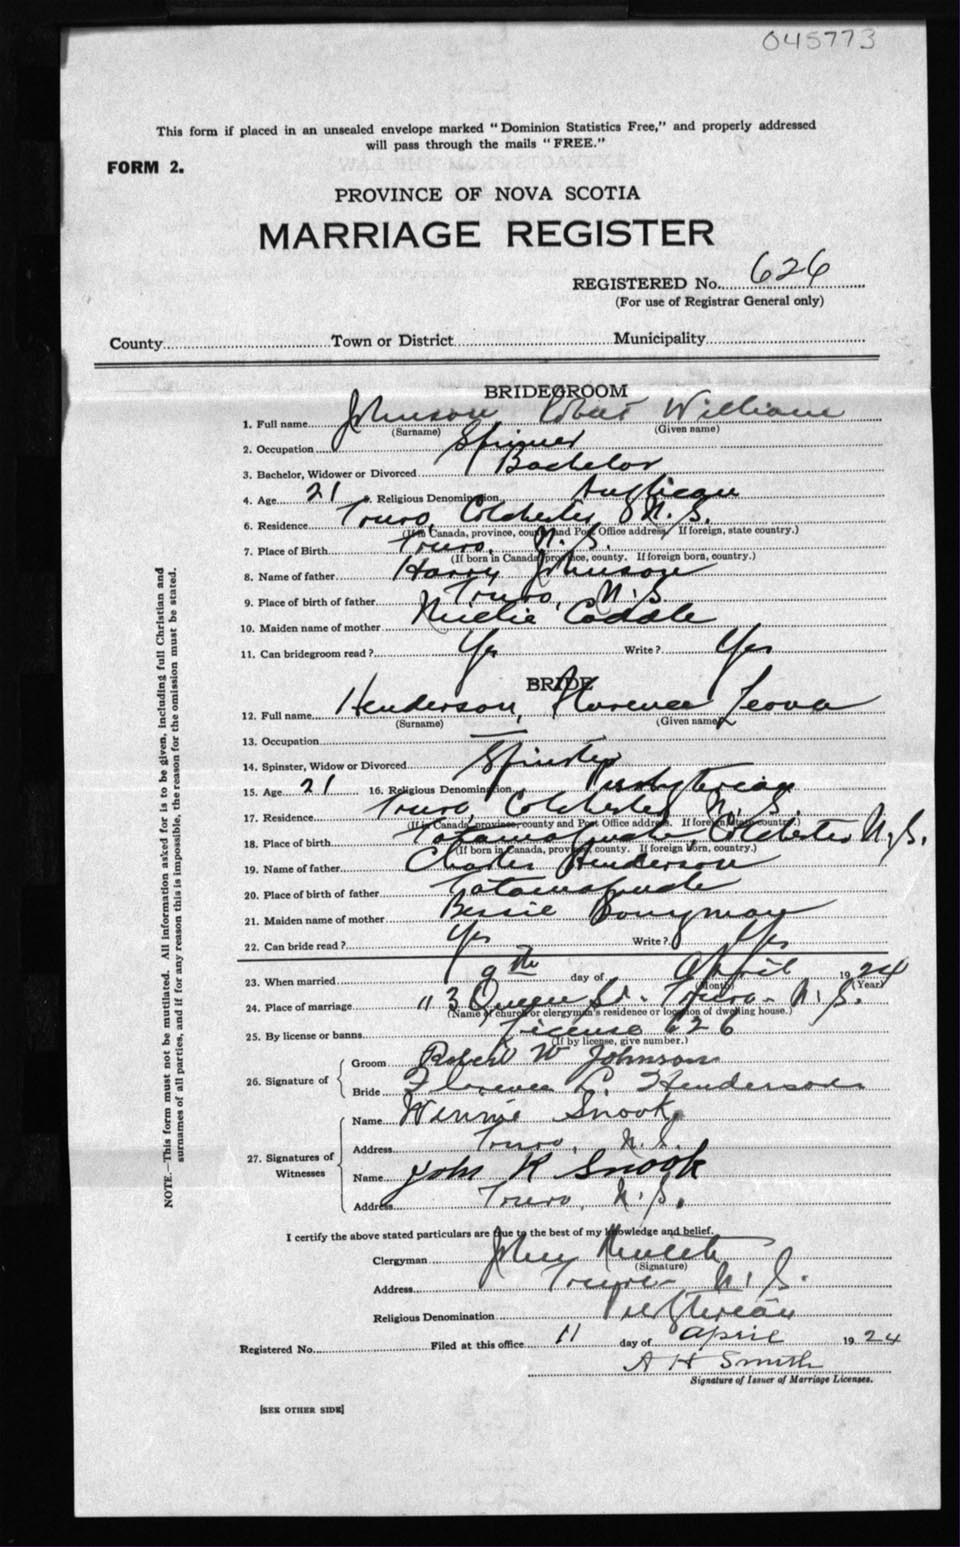 045773
This form if placed in an unsealed envelope marked "Dominion Statistics Free," and properly addressed
will pass through the mails "FREE."
FORM 2.
PROVINCE OF NOVA SCOTIA
MARRIAGE REGISTER
REGISTERED No. 626
(For use of Registrar General only)
County Town or District Municipality
BRIDEGROOM
1. Full name Johnson Robert William
(Surname) (Given name)
2. Occupation
3. Bachelor, Widower or Divorced Bachelor
4. Age 21 Religious Denomination Anglican
6. Residence Truro, Colchester N.S.
(If in Canada, province, county and Post Office address. If foreign, state country.)
7. Place of Birth Truro, N.S.
(If born in Canada, province, county. If foreign born, country.)
8. Name of father Harry Johnson
9. Place of birth of father Truro, N.S
10. Maiden name of mother
11. Can bridegroom read? Yes Write? Yes
BRIDE
12. Full name Henderson, Florence Leova
(Surname) (Given name)
13. Occupation —
14. Spinster, Widow or Divorced Spinster
15. Age 21 16. Religious Denomination Presbyterian
17. Residence Truro, Colchester, N.S.
(If in Canada, province, county and Post Office address. If foreign, state country.)
18. Place of birth Tatamagouche, Colchester N.S.
(If born in Canada, province, county. If foreign born, country.)
19. Name of father Charles Henderson
20. Place of birth of father Tatamagouche
21. Maiden name of mother Bessie Bonyman
22. Can bride read? Yes Write? Yes
23. When married 9th day of April 1924
(Month) (Year)
24. Place of marriage 113 Queen St. Truro - N.S.
(Name of church or clergyman's residence or location of dwelling house.)
25. By license or banns License 626
(If by license, give number.)
26. Signature of Groom Robert W Johnson
Bride Florence L. Henderson
27. Signatures of Witnesses Name Winnie Snook
Address Truro, N.S.
Name John R Snook
Address Truro, N.S.
I certify the above stated particulars are true to the best of my knowledge and belief.
Clergyman John
(Signature)
Address Truro N.S.
Religious Denomination Presbyterian
Registered No. Filed at this office 11 day of April 1924
A H Smith
Signature of Issuer of Marriage Licenses.
[SEE OTHER SIDE]
NOTE.—This form must not be mutilated. All information asked for is to be given, including full Christian and
surnames of all parties, and if for any reason this is impossible, the reason for the omission must be stated.